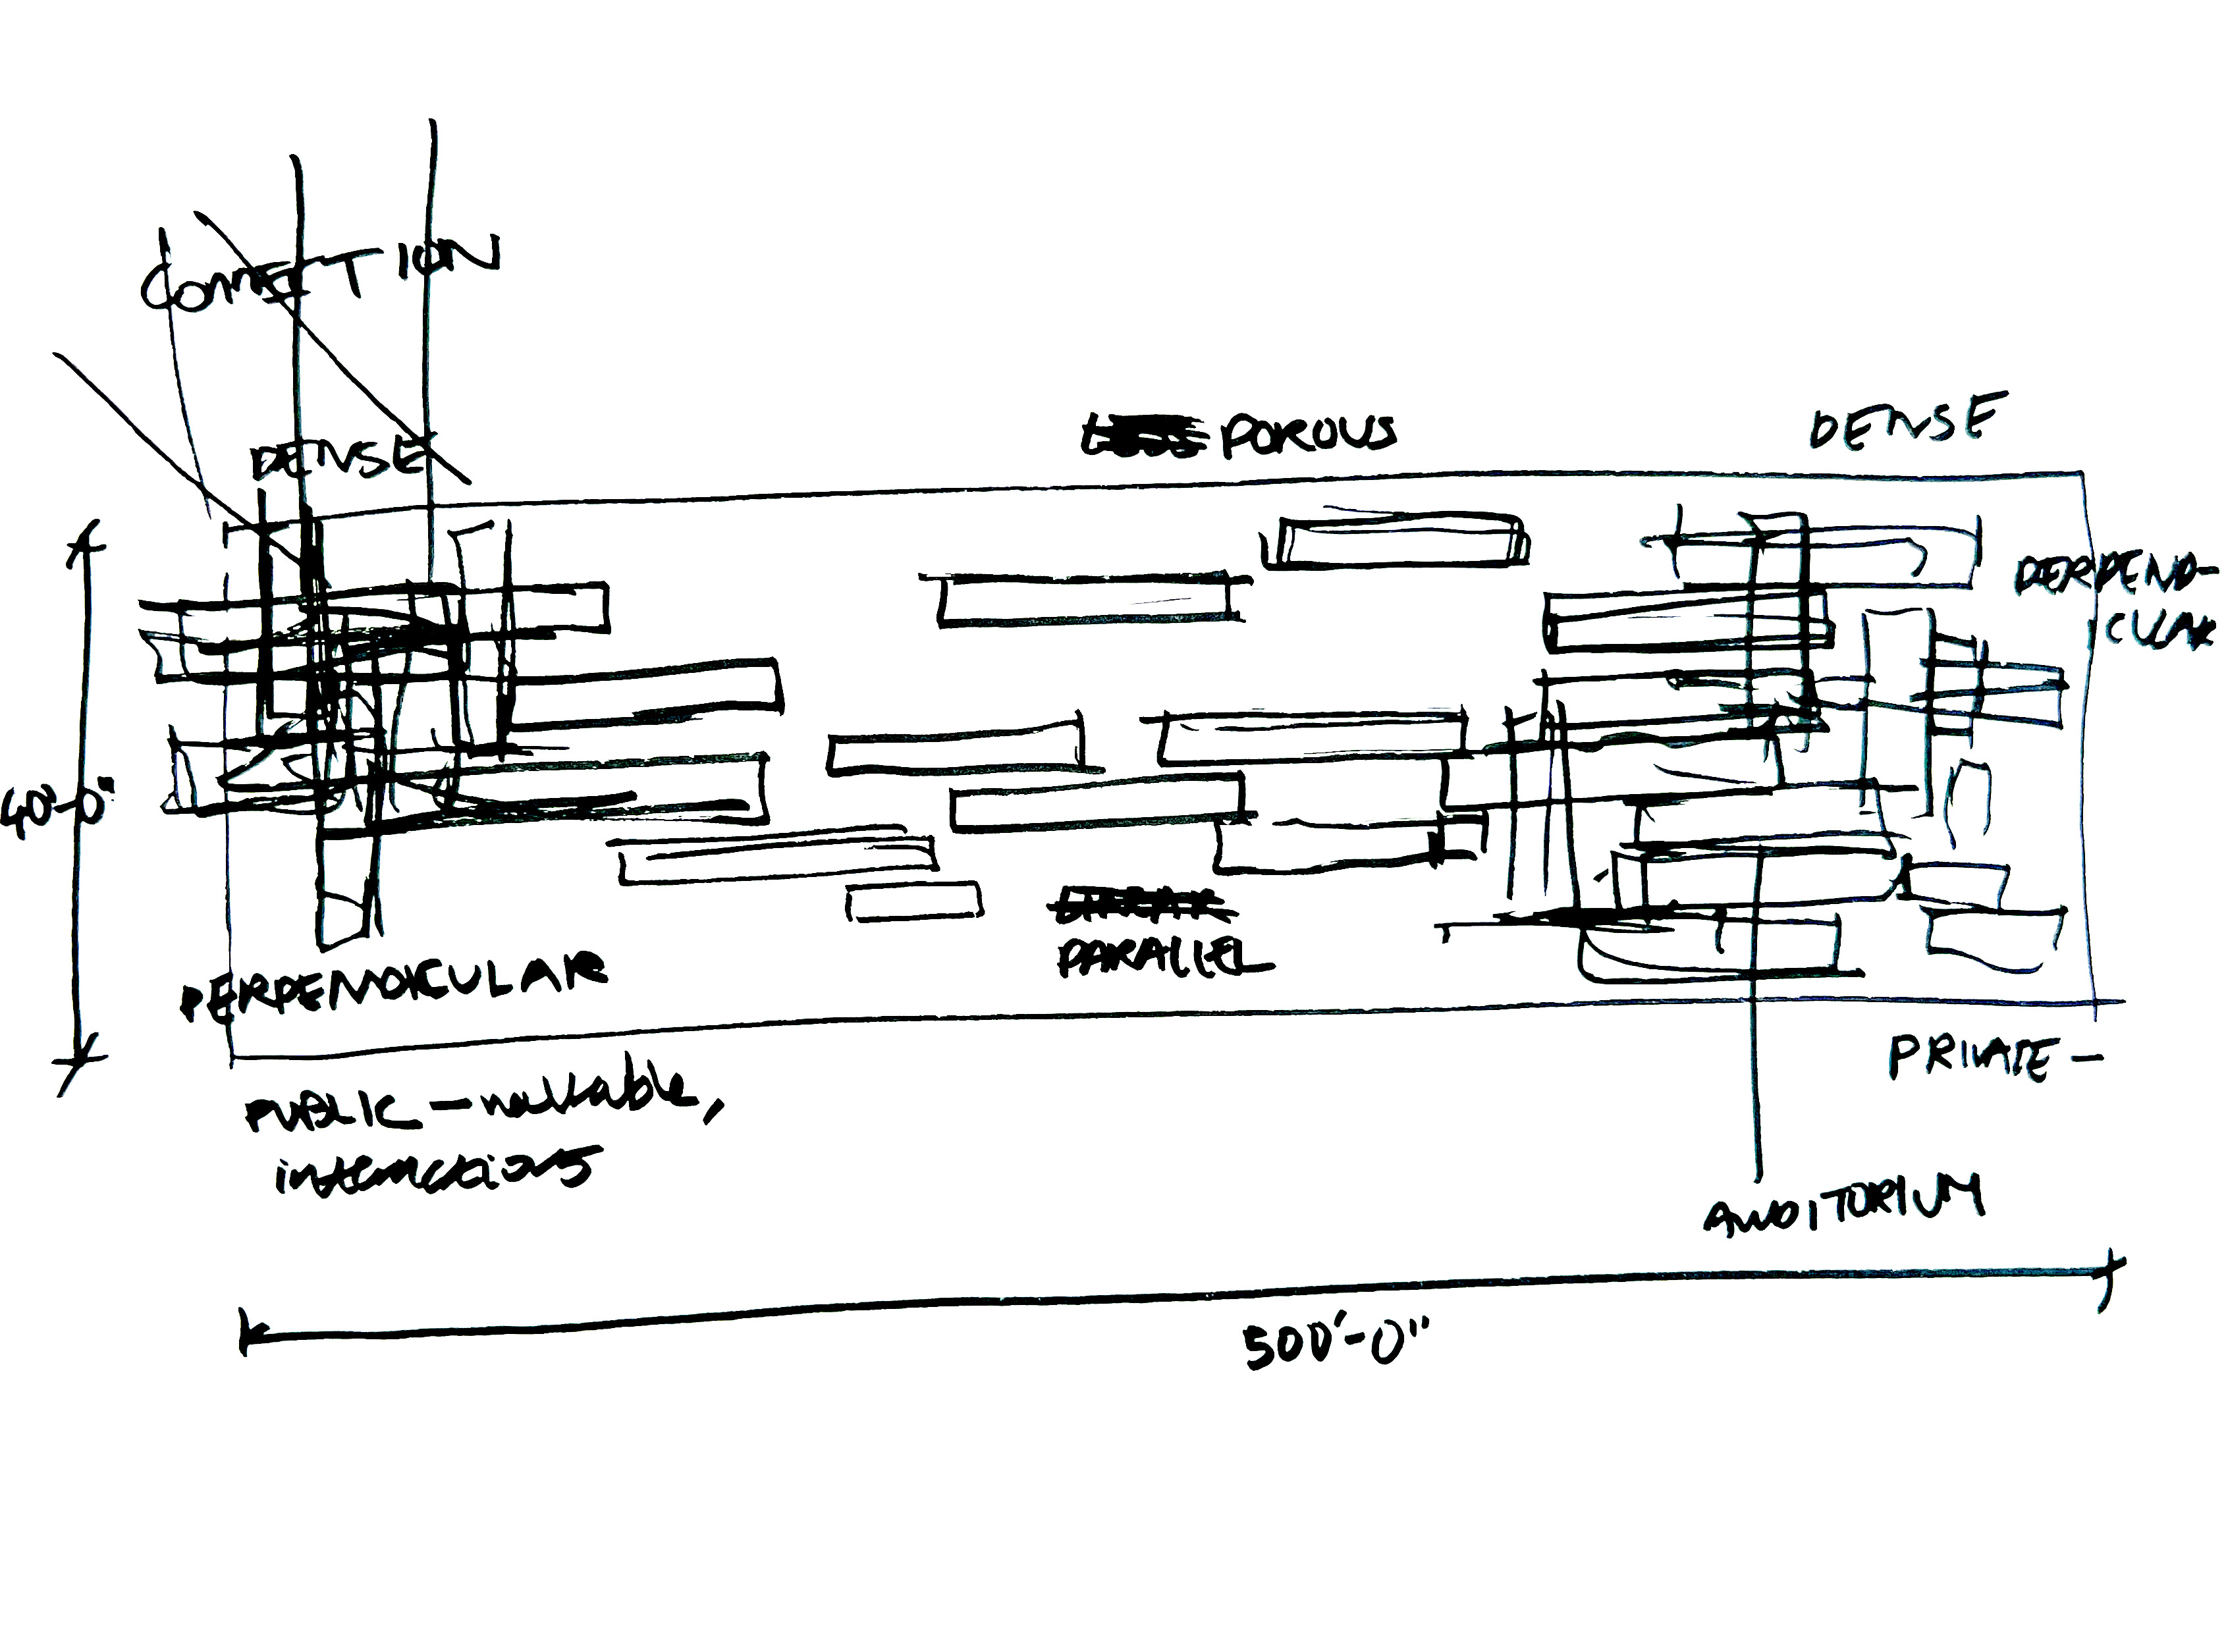 CONNECTION
DENSE
POROUS
DENSE
PERPEND-
ICULAR
40'-0"
PERPENDICULAR
PARALLEL
PRIVATE -
PUBLIC - walkable,
interactions
AUDITORIUM
500'-0"